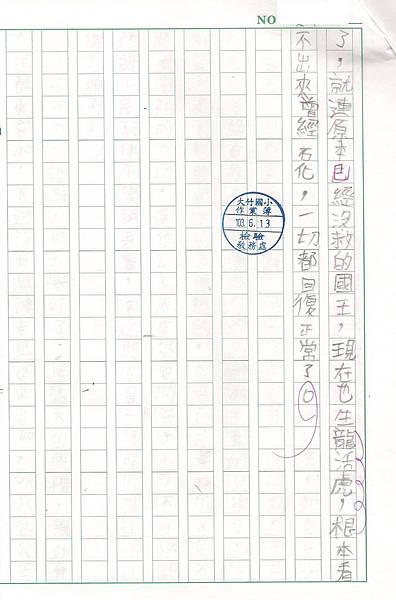 NO
了，就連原本已經沒救的國王，現在也生龍活虎，根本看
不出來曾經石化，一切都回復正常了。
大竹國小
作業簿
103.6.13
檢驗
教務處